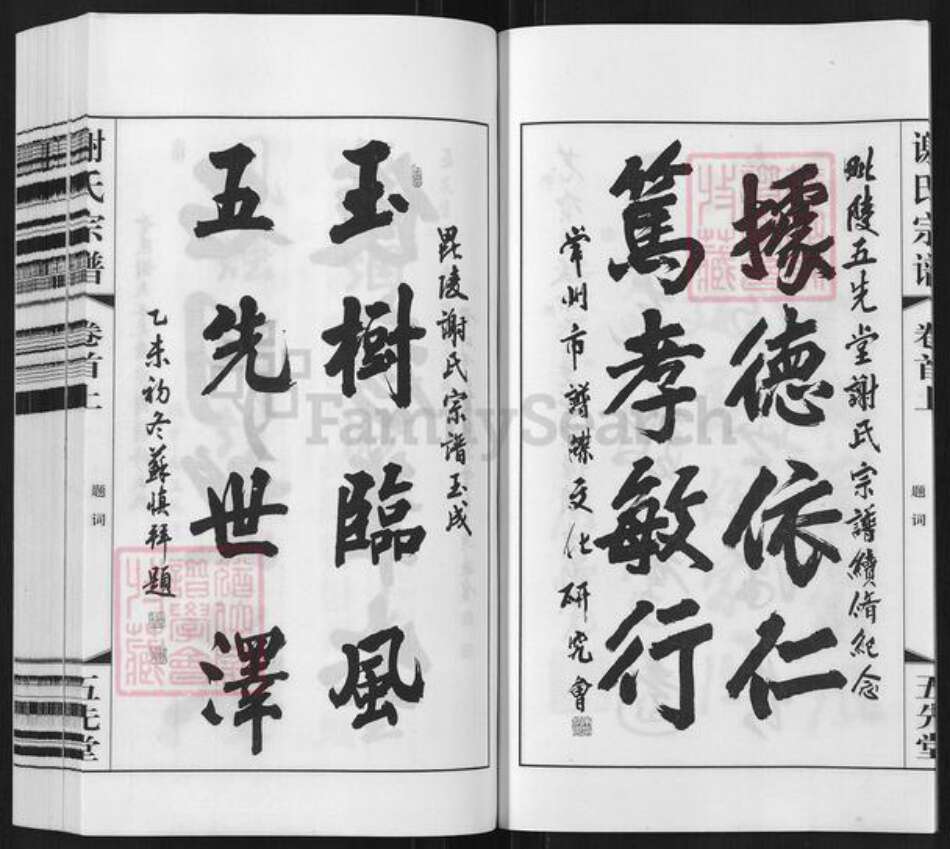 谢氏宗谱
卷首上
题词
五先堂
毗陵五先堂謝氏宗譜續脩紀念
據德依仁
篤孝敏行
常州市譜牒文化研究會
毘陵謝氏宗譜玉成
玉樹臨風
五先世澤
乙未初冬蘇慎拜題
谢氏宗谱
卷首上
题词
五先堂
FamilySearch